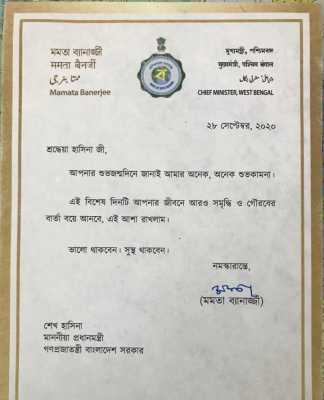 মমতা ব্যানার্জ্জী
ममता बैनर्जी
ممتا بنرجی
Mamata Banerjee
মুখ্যমন্ত্রী, পশ্চিমবঙ্গ
मुख्यमंत्री, पश्चिम बंगाल
CHIEF MINISTER, WEST BENGAL
২৮ সেপ্টেম্বর, ২০২০
শ্রদ্ধেয়া হাসিনা জী,
আপনার শুভজন্মদিনে জানাই আমার অনেক, অনেক শুভকামনা।
এই বিশেষ দিনটি আপনার জীবনে আরও সমৃদ্ধি ও গৌরবের
বার্তা বয়ে আনবে, এই আশা রাখলাম।
ভালো থাকবেন। সুস্থ থাকবেন।
নমস্কারান্তে,
(মমতা ব্যানার্জ্জী)
শেখ হাসিনা
মাননীয়া প্রধানমন্ত্রী
গণপ্রজাতন্ত্রী বাংলাদেশ সরকার